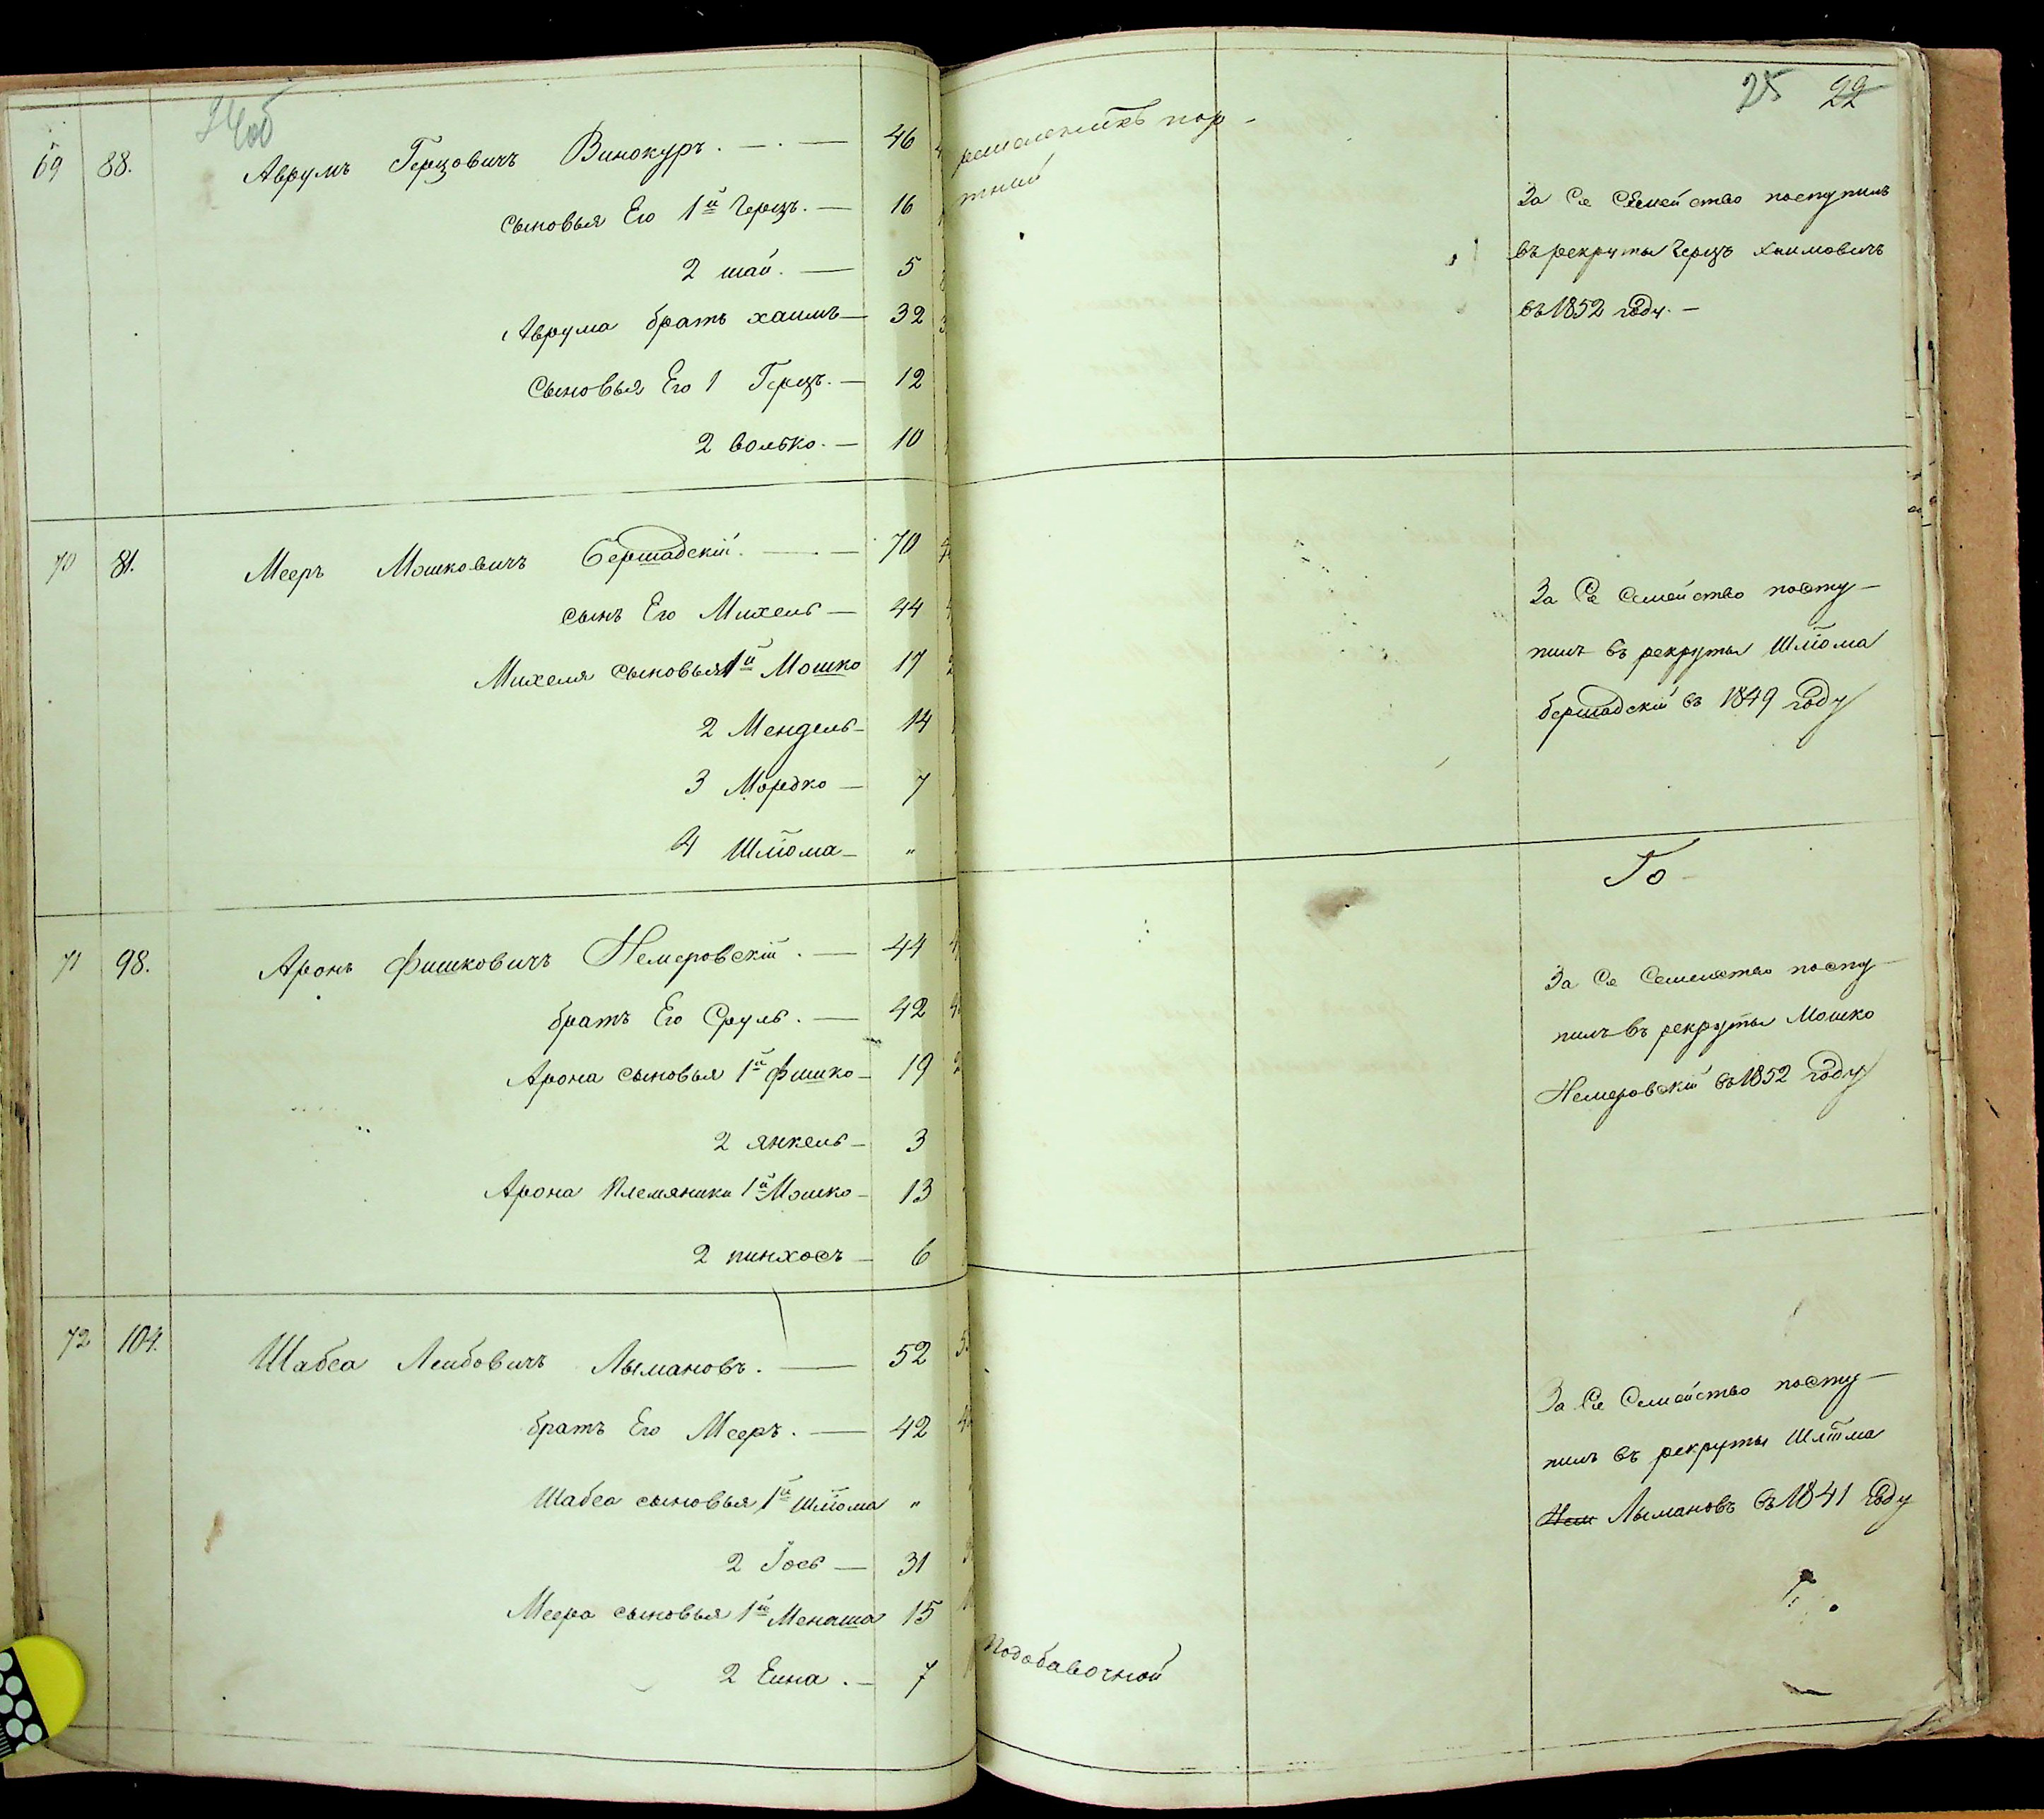 25 22
69 88. Аврумъ Герцовичъ Винокуръ. — 46
сыновья Его 1й Герцъ. — 16
2 шай. — 5
Аврума братъ хаимъ — 32
Сыновья Его 1 Герцъ. — 12
2 волько. — 10
70 81. Мееръ Мошковичъ Бершадскій. — 70
сынъ Его Михель — 44
Михеля сыновья 1й Мошко 17
2 Мендель — 14
3 Мордко — 7
4 Шлiома — "
71 98. Аронъ Фишковичъ Немеровскій. — 44
братъ Его Сруль. — 42
Арона сыновья 1й Фишко — 19
2 янкель — 3
Арона Племяники 1й Мошко — 13
2 пинхосъ — 6
72 104. Шабса Лейбовичъ Лымановъ. — 52
братъ Его Мееръ. — 42
Шабса сыновья 1й Шлiома "
2 Iось — 31
Меера сыновья 1й Менаша 15
2 Еина. — 7
ремесленникъ пор-
тний
За Сіе Семейство поступилъ
въ рекруты Герцъ Хаимовичъ
въ 1852 году. —
За Сіе Семейство посту-
пилъ въ рекруты Шлiома
бершадскій въ 1849 году
То —
За Сіе Семейство посту-
пилъ въ рекруты Мошко
Немеровскій въ 1852 году
За Сіе Семейство посту-
пилъ въ рекруты Шлiома
Нем Лымановъ въ 1841 году
Подобавочной